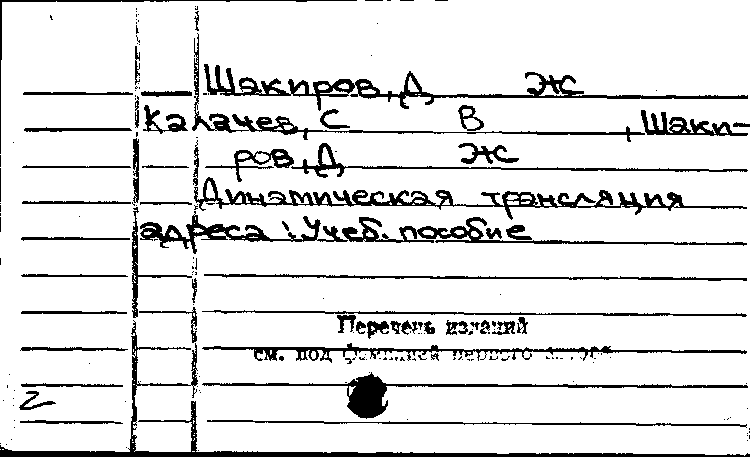 Шакиров, Д Ж
Калачев, С В , Шаки-
ров, Д Ж
Динамическая трансляция
адреса : Учеб. пособие
Перечень изданий
см. под фамилией первого автора
2